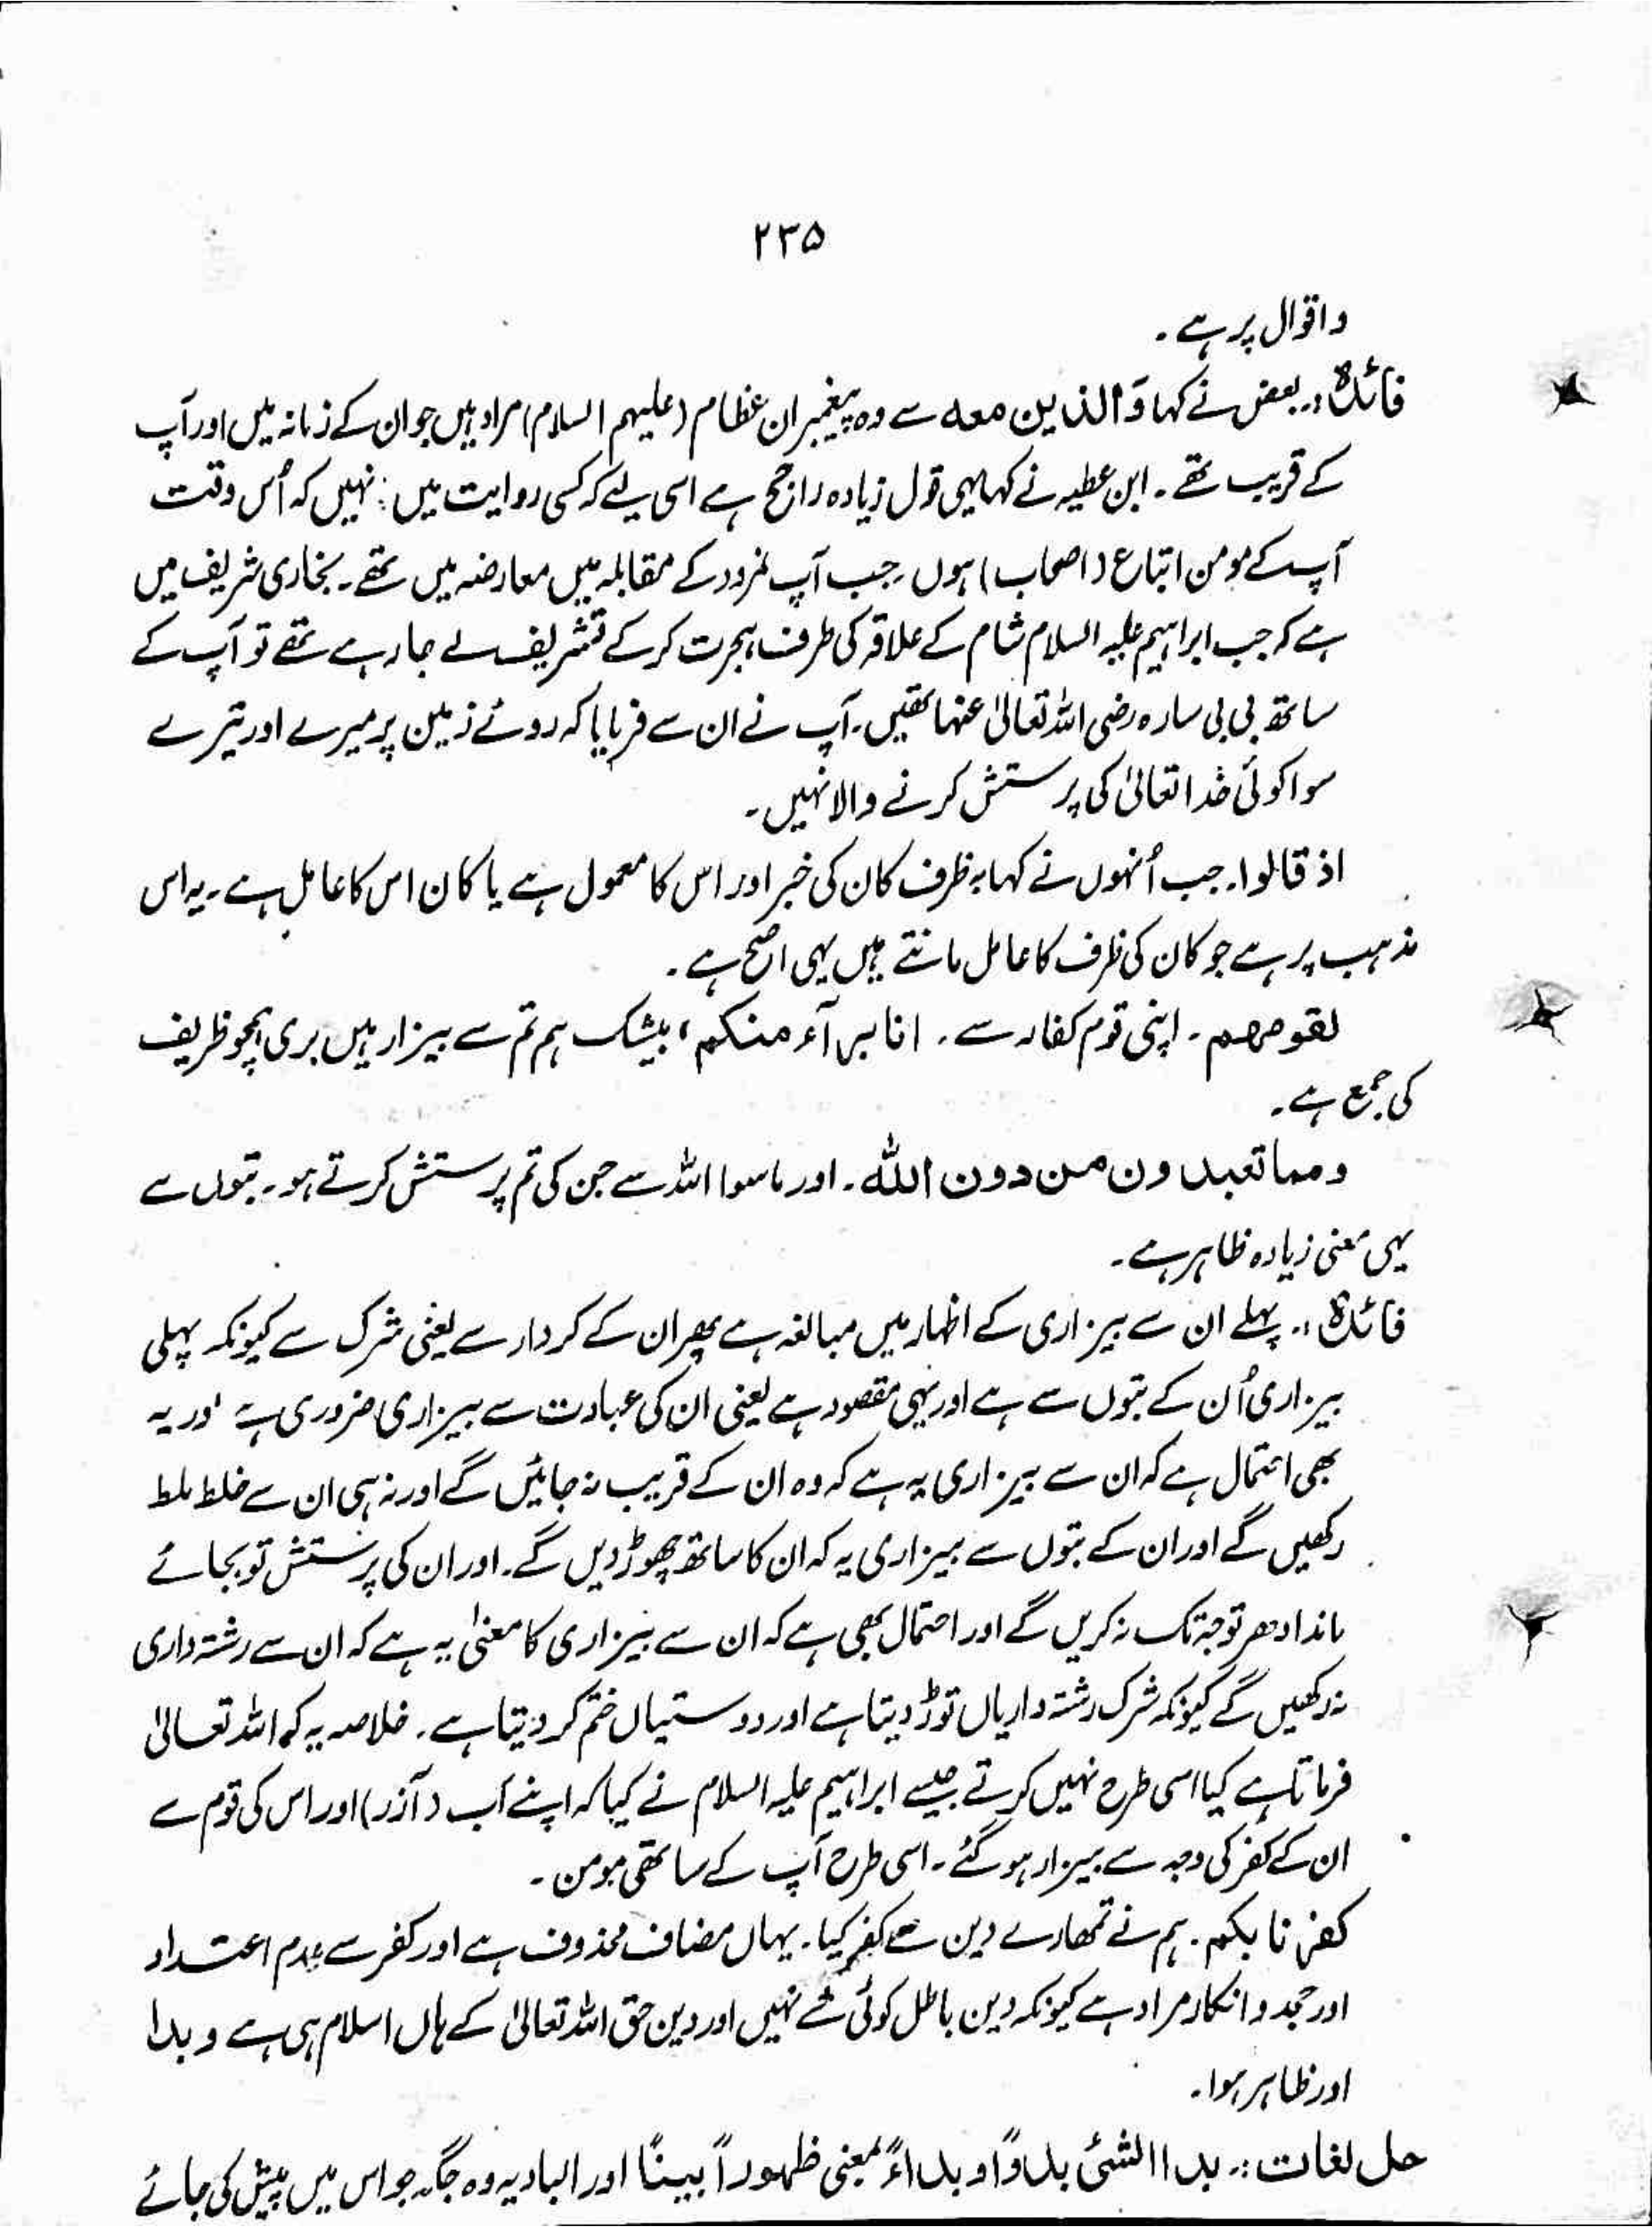 ۲۳۵
واقوال پر ہے ۔
فائدہ :۔ بعض نے کہا وَالذین معہ سے وہ پیغمبران عظام (علیہم السلام) مراد ہیں جو ان کے زمانہ میں اور آپ
کے قریب تھے ۔ ابن عطیہ نے کہا یہی قول زیادہ راجح ہے اسی لیے کہ کسی روایت میں نہیں کہ اُس وقت
آپ کے مومن اتباع (اصحاب) ہوں جب آپ نمرود کے مقابلہ میں معارضہ میں تھے ۔ بخاری شریف میں
ہے کہ جب ابراہیم علیہ السلام شام کے علاقہ کی طرف ہجرت کر کے تشریف لے جارہے تھے تو آپ کے
ساتھ بی بی سارہ رضی اللہ تعالیٰ عنہا تھیں ۔ آپ نے ان سے فرمایا کہ روئے زمین پر میرے اور تیرے
سوا کوئی خدا تعالیٰ کی پرستش کرنے والا نہیں ۔
اذ قالوا۔ جب اُنہوں نے کہا یہ ظرف کان کی خبر اور اس کا معمول ہے یا کان اس کا عامل ہے ۔ یہ اس
مذہب پر ہے جو کان کی ظرف کا عامل مانتے ہیں یہی اصح ہے ۔
لقومھم ۔ اپنی قوم کفار سے ۔ انا برآء منکم ، بیشک ہم تم سے بیزار ہیں بری ہمچو ظریف
کی جمع ہے ۔
ومما تعبدون من دون اللہ ۔ اور ماسوا اللہ سے جن کی تم پرستش کرتے ہو ۔ بتوں سے
یہی معنی زیادہ ظاہر ہے ۔
فائدہ :۔ پہلے ان سے بیزاری کے اظہار میں مبالغہ ہے پھر ان کے کردار سے یعنی شرک سے کیونکہ پہلی
بیزاری اُن کے بتوں سے ہے اور یہی مقصود ہے یعنی ان کی عبادت سے بیزاری ضروری ہے اور یہ
بھی احتمال ہے کہ ان سے بیزاری یہ ہے کہ وہ ان کے قریب نہ جائیں گے اور نہ ہی ان سے خلط ملط
رکھیں گے اور ان کے بتوں سے بیزاری یہ کہ ان کا ساتھ چھوڑ دیں گے ۔ اور ان کی پرستش تو بجائے
ماند ادھر توجہ تک نہ کریں گے اور احتمال بھی ہے کہ ان سے بیزاری کا معنیٰ یہ ہے کہ ان سے رشتہ داری
نہ رکھیں گے کیونکہ شرک رشتہ داریاں توڑ دیتا ہے اور دوستیاں ختم کر دیتا ہے ۔ خلاصہ یہ کہ اللہ تعالیٰ
فرماتا ہے کیا اسی طرح نہیں کرتے جیسے ابراہیم علیہ السلام نے کیا کہ اپنے اَب (آذر) اور اس کی قوم سے
ان کے کفر کی وجہ سے بیزار ہو گئے ۔ اسی طرح آپ کے ساتھی مومن ۔
کفرنا بکم ۔ ہم نے تمھارے دین سے کفر کیا ۔ یہاں مضاف محذوف ہے اور کفر سے عدم اعتداد
اور جحد و انکار مراد ہے کیونکہ دین باطل کوئی شے نہیں اور دین حق اللہ تعالیٰ کے ہاں اسلام ہی ہے وبدا
اور ظاہر ہوا ۔
حل لغات :۔ بدا الشئی بدوًا و بداءً بمعنی ظہوراً بینًا اور البادیہ وہ جگہ جو اس میں پیش کی جائے